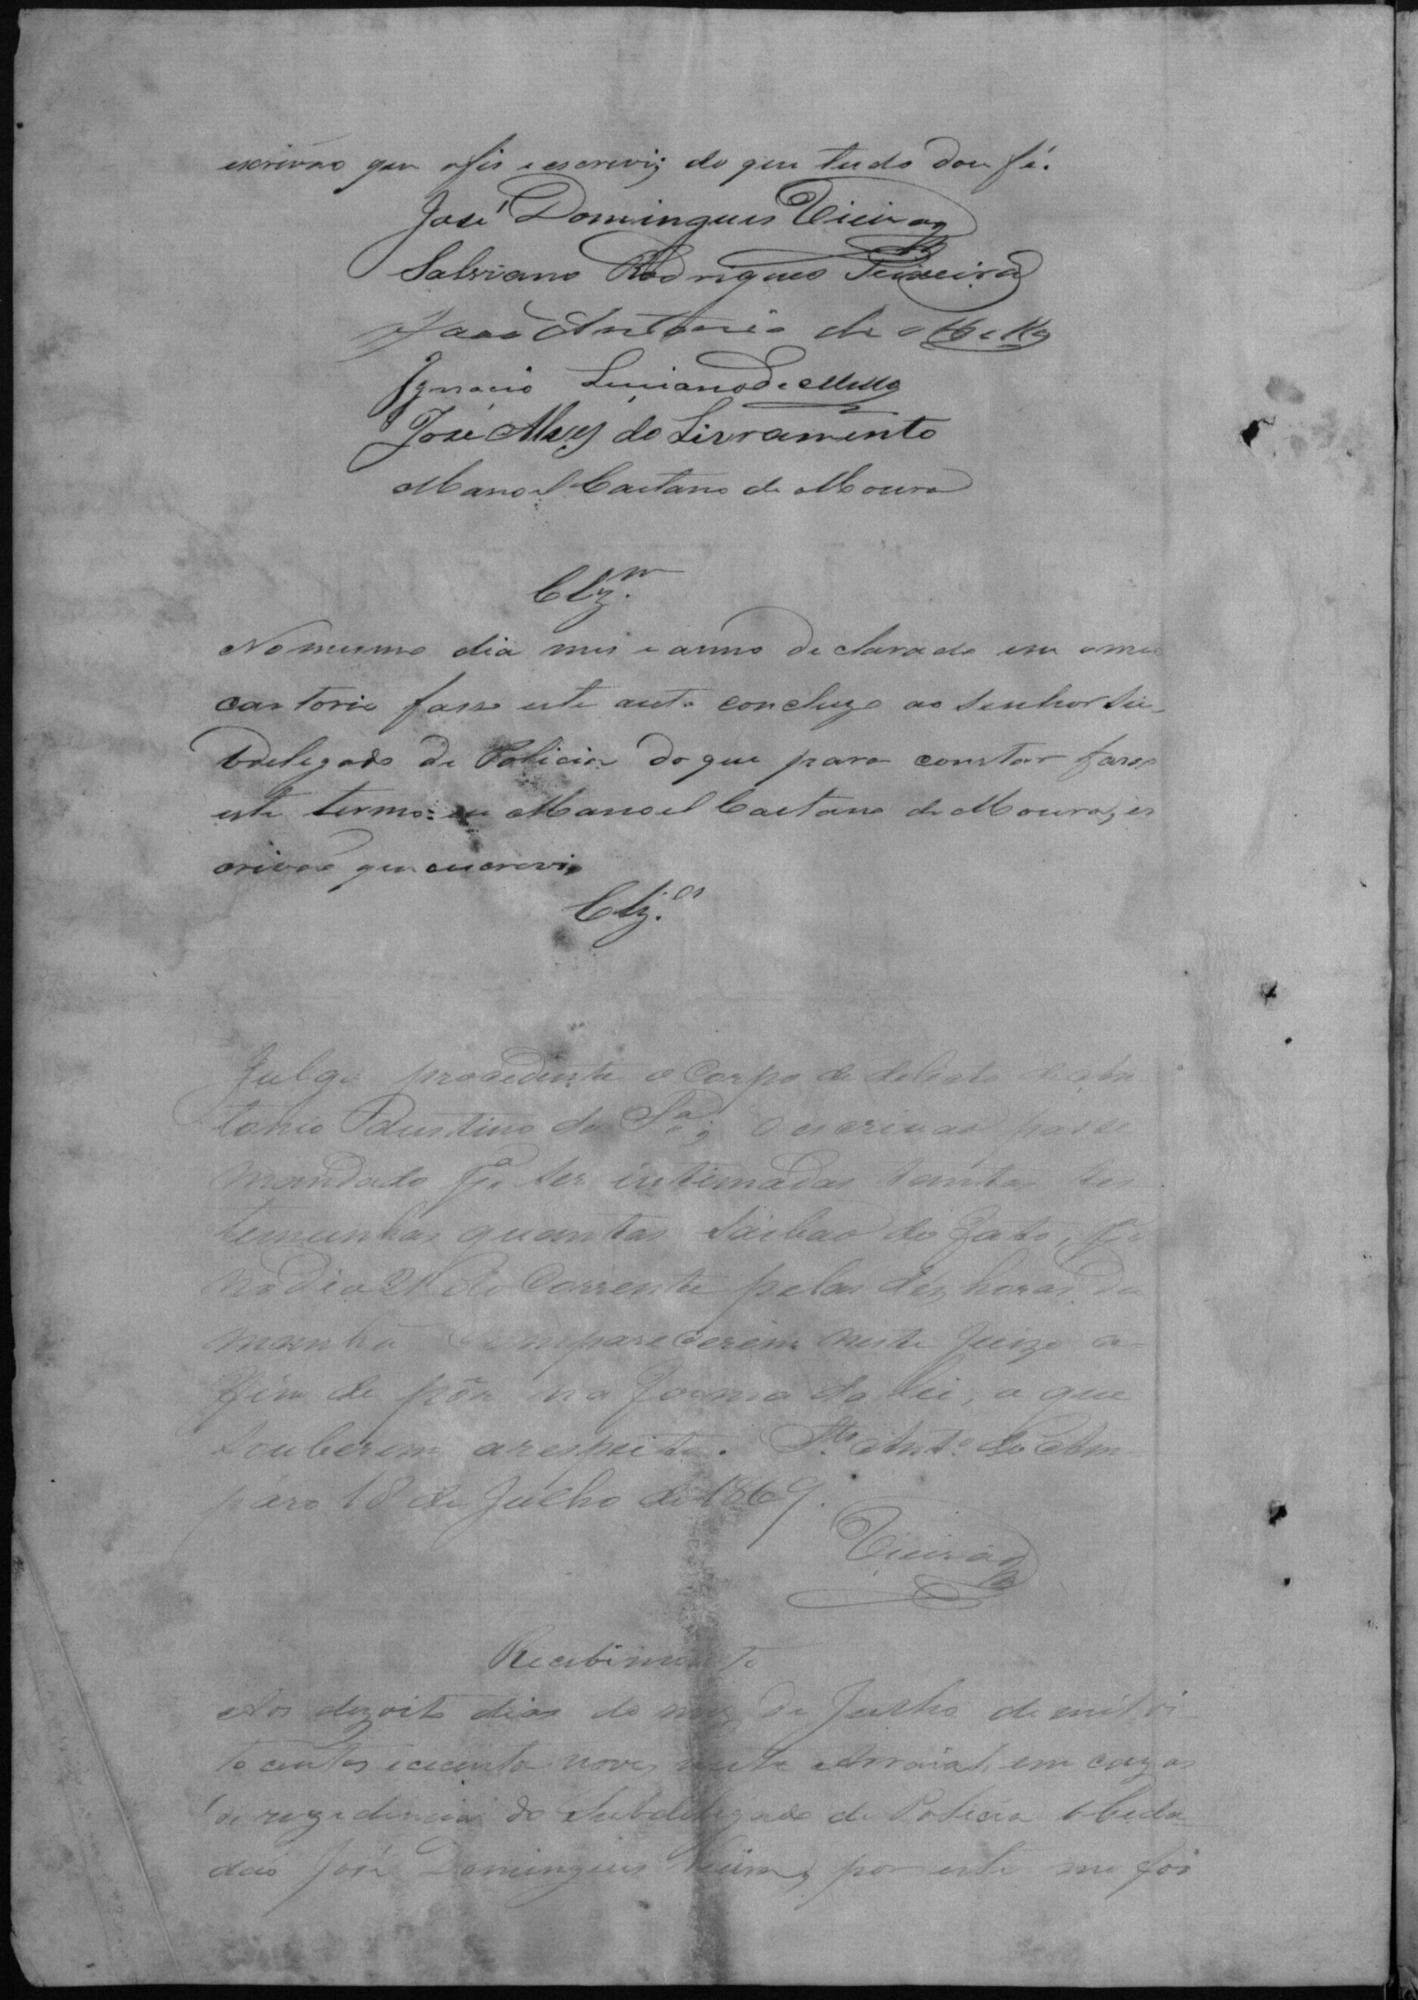 escrivão que ofis e escrevi; do que tudo dou fé.
José Domingues Vieira
Salviano Rodrigues Teixeira
João Antonio de Mello
Ignacio Luciano de Mello
José Alves do Livramento
Manoel Caetano de Moura
Clz.m
No mesmo dia mes e anno declarado em o meu
cartorio fasso este auto concluzo ao Senhor Su-
bdelegado de Policia do que para constar fasso
este termo: eu Manoel Caetano de Moura, es
crivão que escrevi,
Clz.os
Julgo procedente o corpo de delicto de An-
tonio Faustino de S.a; O escrivão passe
mandado p.a ser intimadas tantas tes
temunhas quantas saibão do facto, p.a
no dia 21 do corrente pelas des horas da
manhã comparecerem neste Juizo a
fim de pôr na forma da lei, o que
souberem arespeito. S.to Ant.o do Am-
paro 18 de Julho de 1869.
Vieira
Recebimento
Aos dezoito dias do mez de Julho de mil oi
to centos e cecenta nove, neste Arraial, em cazas
de rezidencia do Subdelegado de Policia o Cida
dão José Domingues Vieira, por este me foi